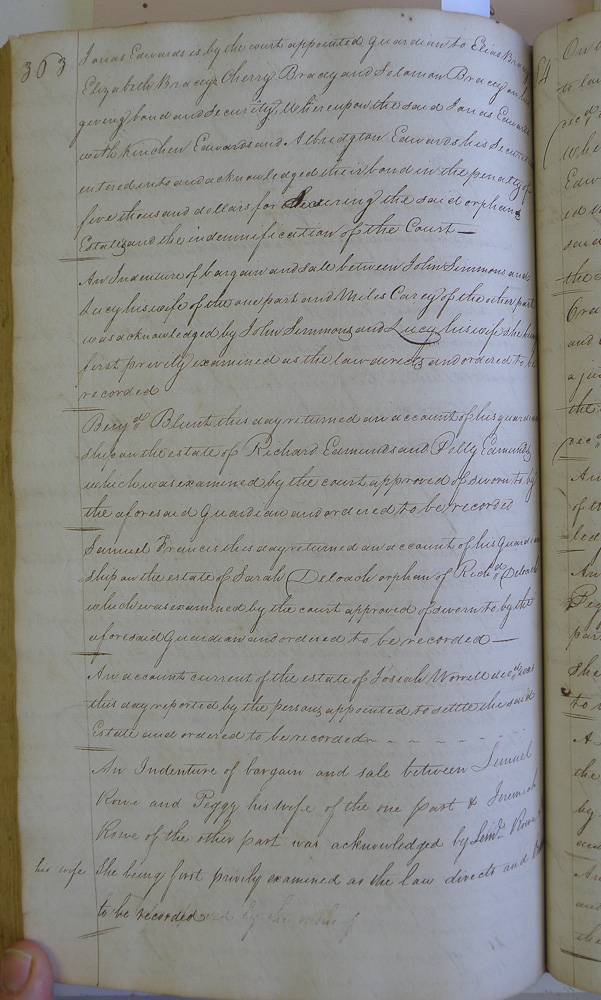 303
Jonas Edwards is by the court appointed guardian to Elias Bracy
Elizabeth Bracy Cherry Bracy and Soloman Bracey on his
giving bond and security, Whereupon the said Jonas Edwards
with Kinchen Edwards and Albridgton Edwards his Securities
entered into and acknowledged their bond in the penalty of
five thousand dollars for Securing the said orphans
Estates and the indemnification of the Court —
An Indenture of bargain and sale between John Simmons and
Lucy his wife of the one part and Miles Carey of the other part
was acknowledged by John Simmons and Lucy his wife she being
first privily examined as the law directs and ordered to be
recorded
Blunt this day returned an account of his guardian
ship on the estate of Richard Edmunds and Polly Edmunds
which was examined by the court approved of sworn to by
the aforesaid Guardian and ordered to be recorded
Samuel Francis this day returned an account of his Guardian
ship on the estate of Sarah Deloach orphan of Richd Deloach
which was examined by the court approved of sworn to by the
aforesaid Guardian and ordered to be recorded —
An account current of the estate of Josiah Worrell decd was
this day reported by the persons appointed to settle the said
Estate and ordered to be recorded
An Indenture of bargain and sale between Lemuel
Rowe and Peggy his wife of the one part & Jeremiah
Rowe of the other part was acknowledged by Leml Rowe &
his wife She being first privily examined as the law directs and
to be recorded